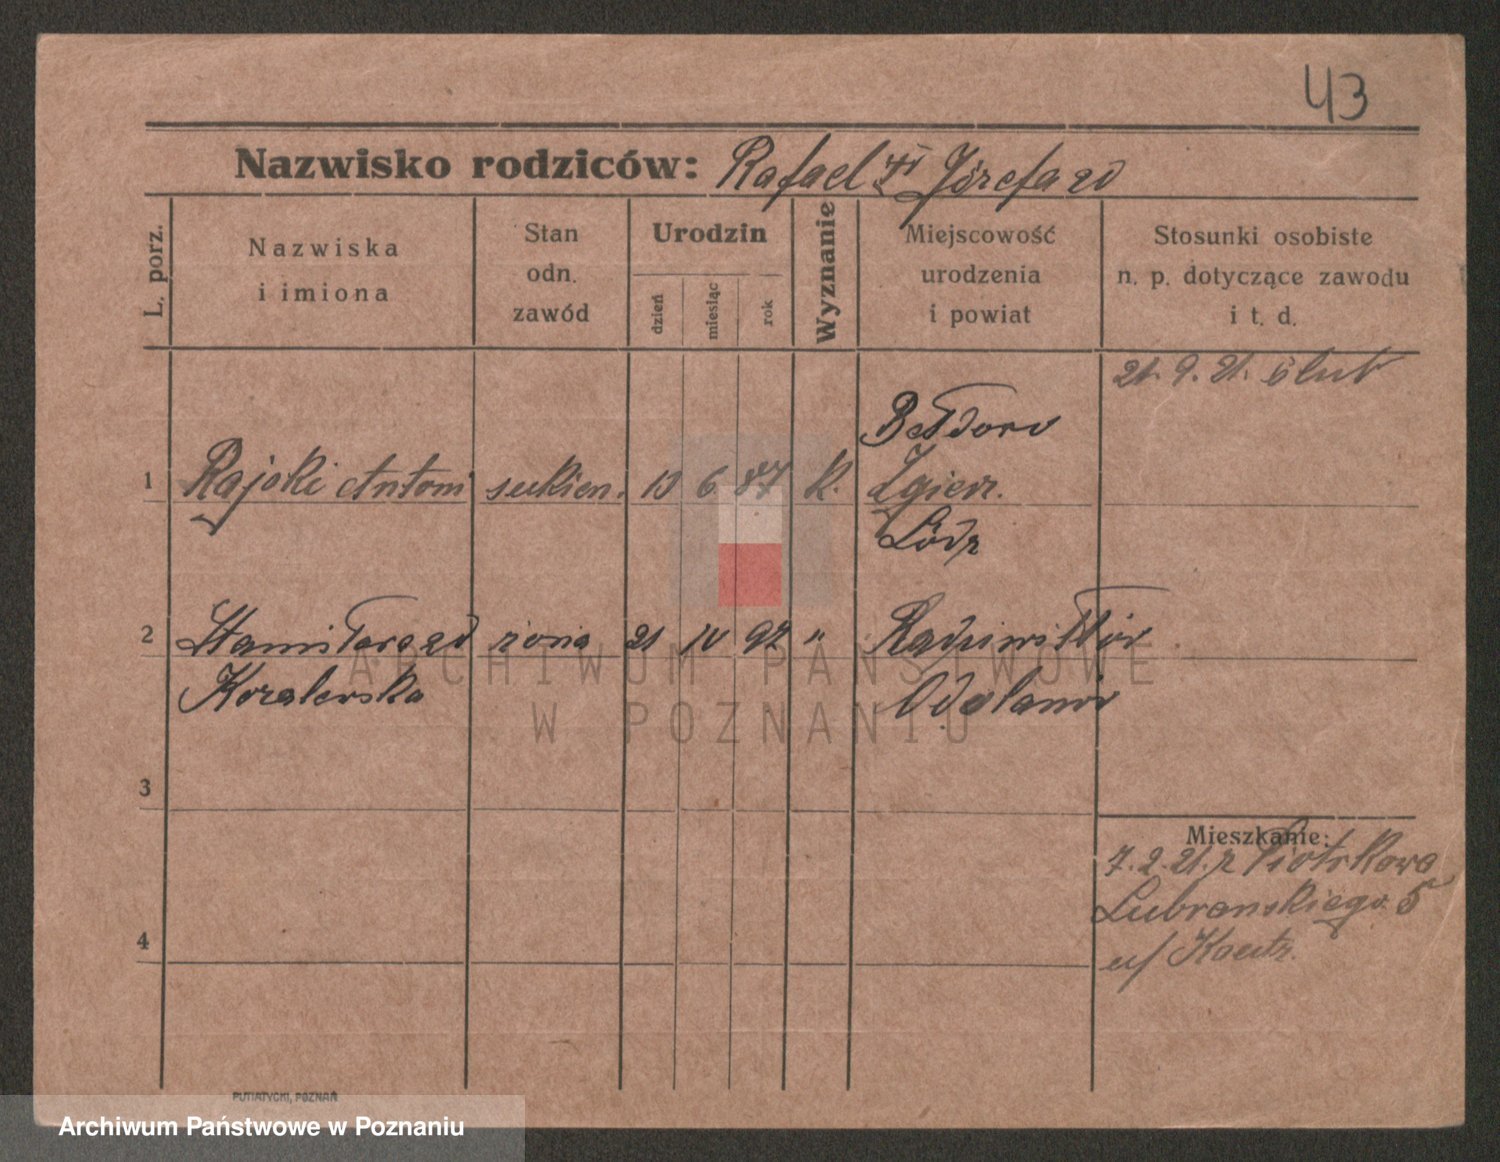 43
Nazwisko rodziców: Rafael i Józefa zd
L. porz.
Nazwiska
i imiona
Stan
odn.
zawód
Urodzin
dzień
miesiąc
rok
Wyznanie
Miejscowość
urodzenia
i powiat
Stosunki osobiste
n. p. dotyczące zawodu
i t. d.
21. 9. 21. ślub
Bełdow
1 Rajski Antoni sukien. 13 6 87 k. Zgierz.
Łódz
2 Stanisława zd żona 21 IV 97 " Radziwiłłów
Kozalewska Odolanów
3
Mieszkanie:
7. 2. 21. z Piotrkowa
Lubranskiego 5
4
u/ Kautz.
PUTIATYCKI, POZNAŃ
ARCHIWUM PAŃSTWOWE
W POZNANIU
Archiwum Państwowe w Poznaniu